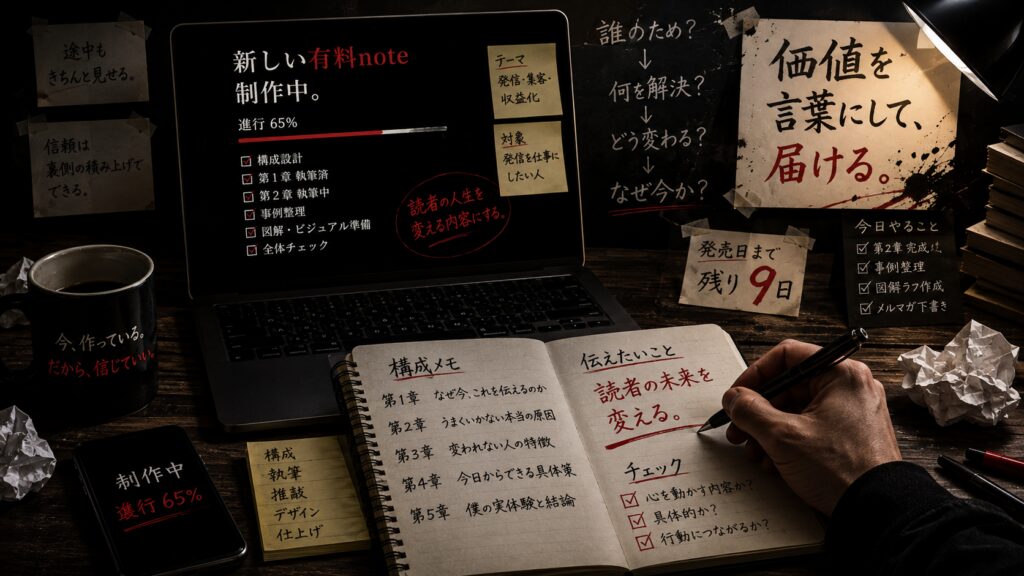 途中も
きちんと見せる。
信頼は
裏側の積み上げで
できる。
新しい有料note
制作中。
進行 65%
構成設計
第1章 執筆済
第2章 執筆中
事例整理
図解・ビジュアル準備
全体チェック
テーマ
発信・集客・
収益化
対象
発信を仕事に
したい人
読者の人生を
変える内容にする。
誰のため?
↓
何を解決?
↓
どう変わる?
↓
なぜ今か?
価値を
言葉にして、
届ける。
発売日まで
残り9日
今日やること
第2章 完成
事例整理
図解ラフ作成
メルマガ下書き
今、作っている。
だから、信じていい。
制作中
進行 65%
構成
執筆
推敲
デザイン
仕上げ
構成メモ
第1章 なぜ今、これを伝えるのか
第2章 うまくいかない本当の原因
第3章 変われない人の特徴
第4章 今日からできる具体策
第5章 僕の実体験と結論
伝えたいこと
読者の未来を
変える。
チェック
心を動かす内容か?
具体的か?
行動につながるか?